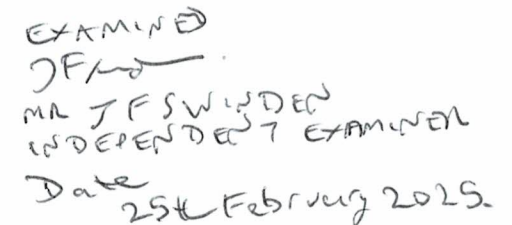 EXAMINED
MR J F SWINDEN
INDEPENDENT EXAMINER
Date
25th February 2025.